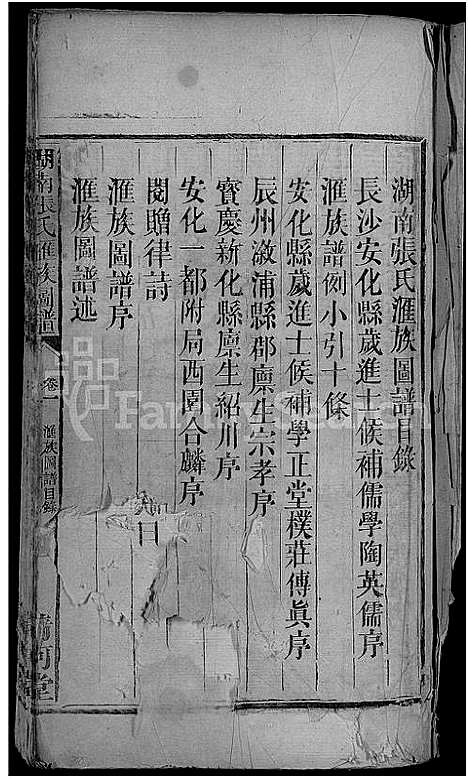 湖南張氏滙族圖譜目錄
長沙安化縣歲進士候補儒學陶英儒序
滙族譜例小引十條
安化縣歲進士候補學正堂樸莊傅眞序
辰州漵浦縣郡廩生宗孝序
寳慶新化縣廪生紹川序
安化一都附局西園合麟序
閔贈律詩
滙族圖譜序
滙族圖譜述
湖南張氏滙族圖譜
卷一
滙族圖譜目錄
清河堂